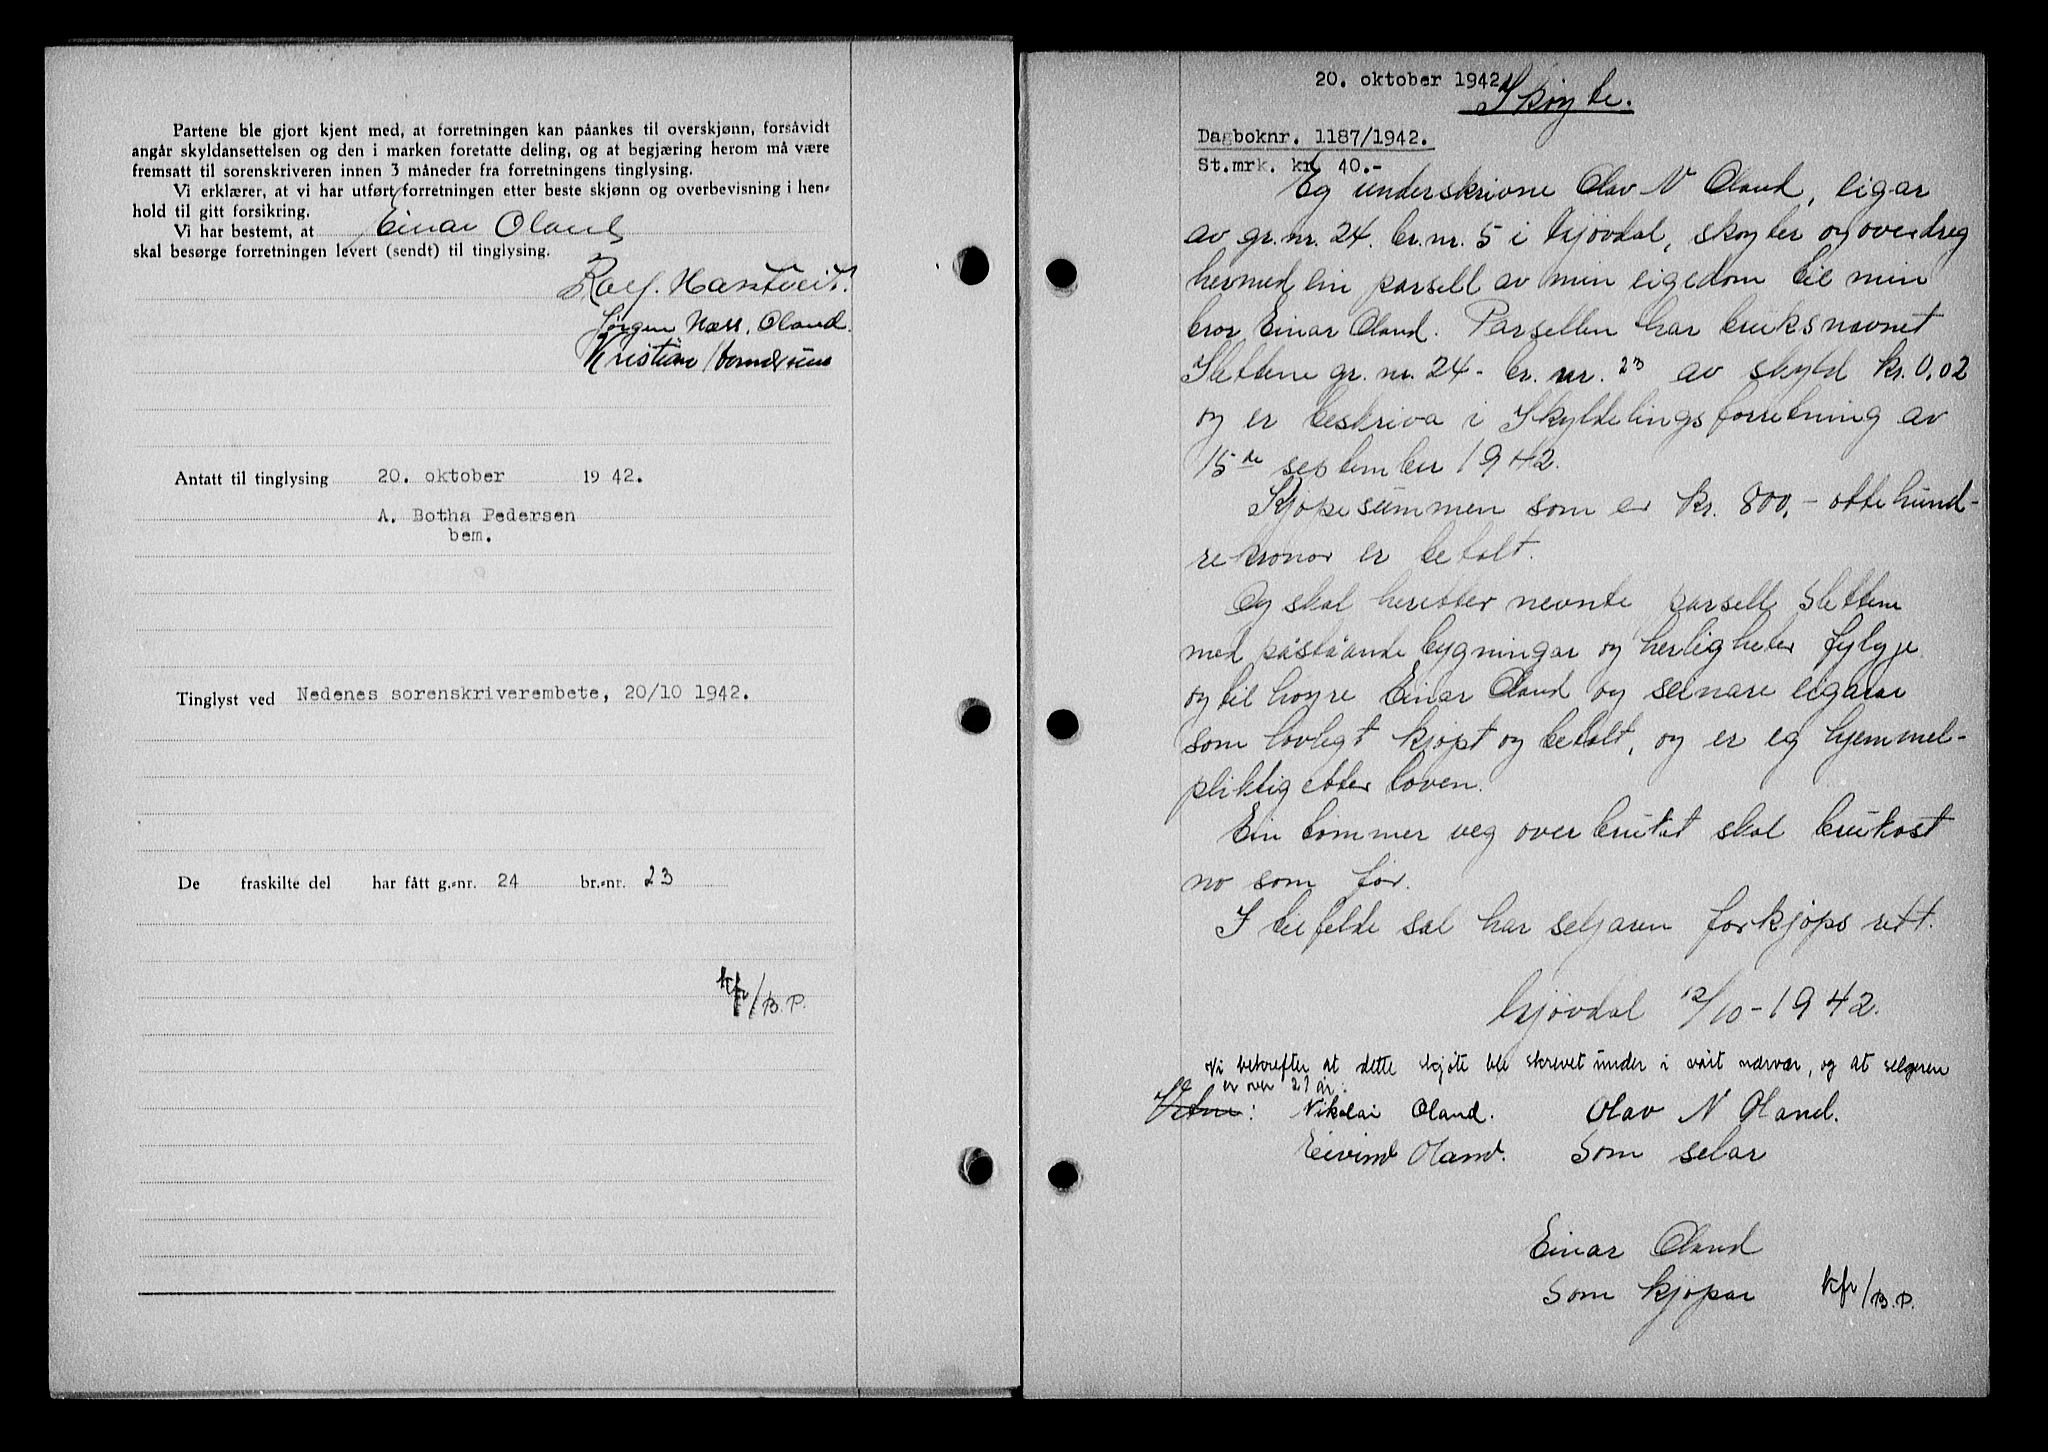 Partene ble gjort kjent med, at forretningen kan påankes til overskjønn, forsåvidt
angår skyldansettelsen og den i marken foretatte deling, og at begjæring herom må være
fremsatt til sorenskriveren innen 3 måneder fra forretningens tinglysing.
Vi erklærer, at vi har utført forretningen etter beste skjønn og overbevisning i hen-
hold til gitt forsikring.
Vi har bestemt, at Einar Oland
skal besørge forretningen levert (sendt) til tinglysing.
Rolf Hanstveit.
Jørgen Næss. Oland.
Kristian
Antatt til tinglysing 20. oktober 1942.
A. Botha Pedersen
bem.
Tinglyst ved Nedenes sorenskriverembete, 20/10 1942.
De fraskilte del har fått g.-nr. 24 br.-nr. 23
kfr/B.P.
20. oktober 1942
Skøyte.
Dagboknr. 1187/1942.
St.mrk. kr 40.-
Eg underskrivne Olav N Oland, eigar
av gr.nr. 24. br.nr. 5 i Gjøvdal, skøyter og overdreg
hermed ein parsell av min eigedom til min
bror Einar Oland. Parsellen har bruksnavnet
Slettene gr. nr. 24 - br. nr. 23 av skyld kr. 0,02
og er beskriva i Skyldelingsforretning av
15de september 1942.
Kjøpesummen som er kr. 800,- ottehund-
re kronor er betalt.
Og skal heretter nevnte parsell Slettene
med påståande bygningar og herligheter fylgje
og tilhøyre Einar Oland og seinare eigarar
som lovligt kjøpt og betalt, og er eg hjemmel-
pliktig etter loven.
Ein tømmer veg over bruket skal brukast
no som før.
I tilfelde sal har seljaren forkjøps rett.
Gjøvdal 12/10-1942.
Vi bekrefter at dette skjøte ble skrevet under i vårt nærvær, og at selgeren
er over 21 år:
Vitne: Nikolai Oland. Olav N Oland.
Eivind Oland. Som selar
Einar Oland
Som kjøpar kfr/B.P.